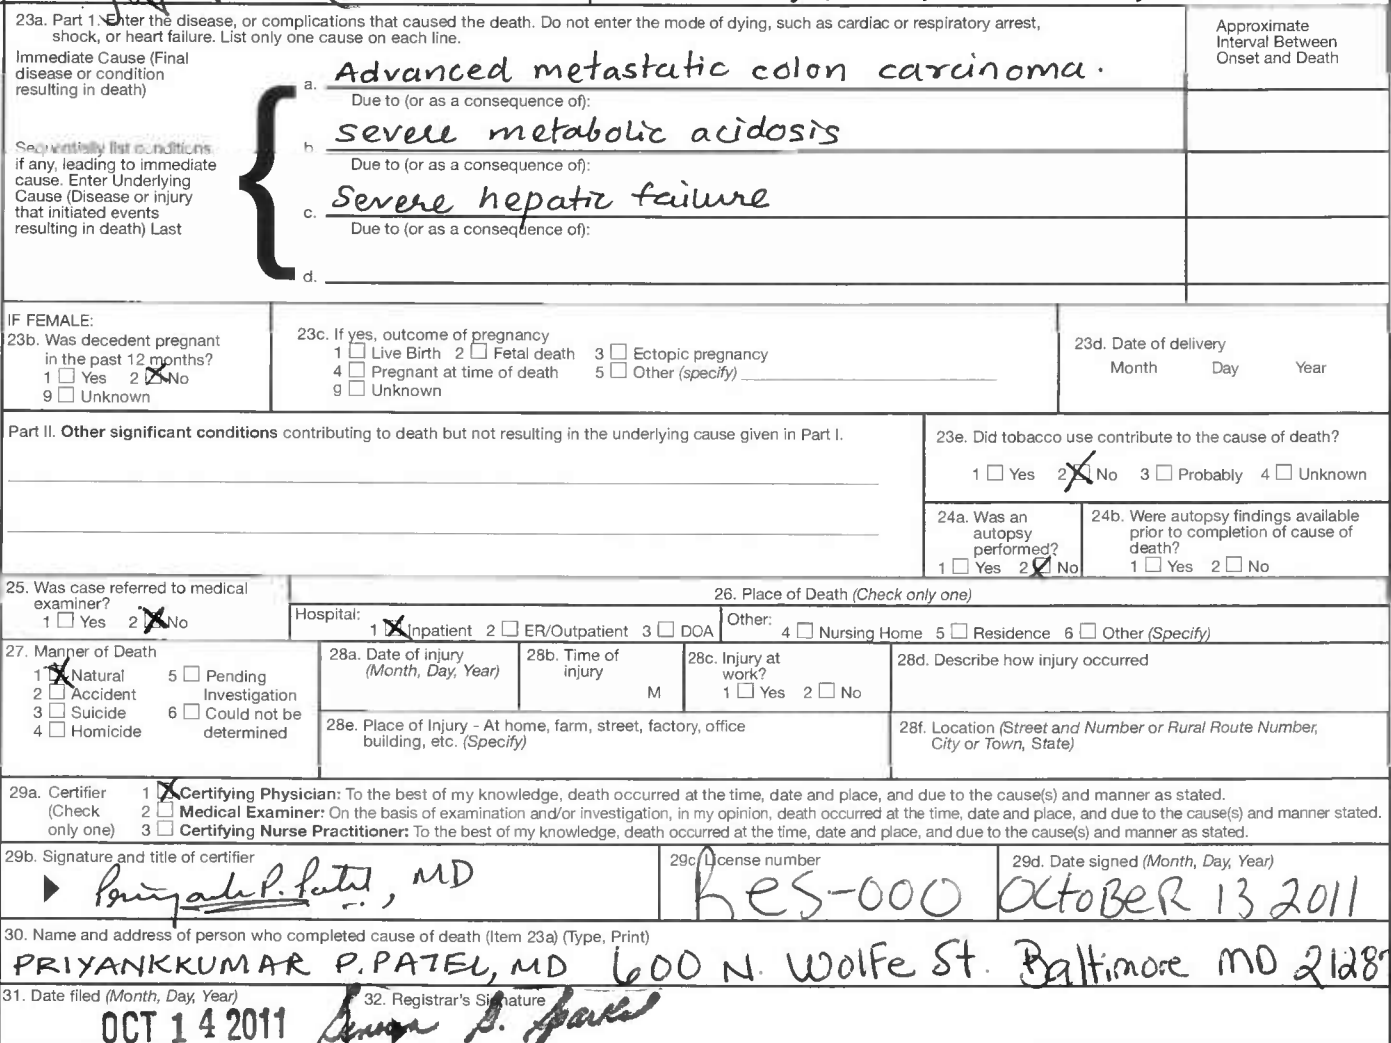 23a. Part 1. Enter the disease, or complications that caused the death. Do not enter the mode of dying, such as cardiac or respiratory arrest,
shock, or heart failure. List only one cause on each line.
Approximate
Interval Between
Onset and Death
Immediate Cause (Final
disease or condition
resulting in death)
a. Advanced metastatic colon carcinoma.
Due to (or as a consequence of):
Sequentially list conditions
if any, leading to immediate
cause. Enter Underlying
Cause (Disease or injury
that initiated events
resulting in death) Last
b. severe metabolic acidosis
Due to (or as a consequence of):
c. Severe hepatic failure
Due to (or as a consequence of):
d.
IF FEMALE:
23b. Was decedent pregnant
in the past 12 months?
1 Yes 2 No
9 Unknown
23c. If yes, outcome of pregnancy
1 Live Birth 2 Fetal death 3 Ectopic pregnancy
4 Pregnant at time of death 5 Other (specify)
9 Unknown
23d. Date of delivery
Month Day Year
Part II. Other significant conditions contributing to death but not resulting in the underlying cause given in Part I.
23e. Did tobacco use contribute to the cause of death?
1 Yes 2 No 3 Probably 4 Unknown
24a. Was an
autopsy
performed?
1 Yes 2 No
24b. Were autopsy findings available
prior to completion of cause of
death?
1 Yes 2 No
25. Was case referred to medical
examiner?
1 Yes 2 No
26. Place of Death (Check only one)
Hospital: 1 Inpatient 2 ER/Outpatient 3 DOA Other: 4 Nursing Home 5 Residence 6 Other (Specify)
27. Manner of Death
1 Natural 5 Pending
2 Accident Investigation
3 Suicide 6 Could not be
4 Homicide determined
28a. Date of injury
(Month, Day, Year)
28b. Time of
injury
M
28c. Injury at
work?
1 Yes 2 No
28d. Describe how injury occurred
28e. Place of Injury - At home, farm, street, factory, office
building, etc. (Specify)
28f. Location (Street and Number or Rural Route Number,
City or Town, State)
29a. Certifier
(Check
only one)
1 Certifying Physician: To the best of my knowledge, death occurred at the time, date and place, and due to the cause(s) and manner as stated.
2 Medical Examiner: On the basis of examination and/or investigation, in my opinion, death occurred at the time, date and place, and due to the cause(s) and manner stated.
3 Certifying Nurse Practitioner: To the best of my knowledge, death occurred at the time, date and place, and due to the cause(s) and manner as stated.
29b. Signature and title of certifier
P. Patel, MD
29c. License number
Res-000
29d. Date signed (Month, Day, Year)
October 13 2011
30. Name and address of person who completed cause of death (Item 23a) (Type, Print)
PRIYANKKUMAR P. PATEL, MD 600 N. Wolfe St. Baltimore MD 21287
31. Date filed (Month, Day, Year)
OCT 14 2011
32. Registrar's Signature